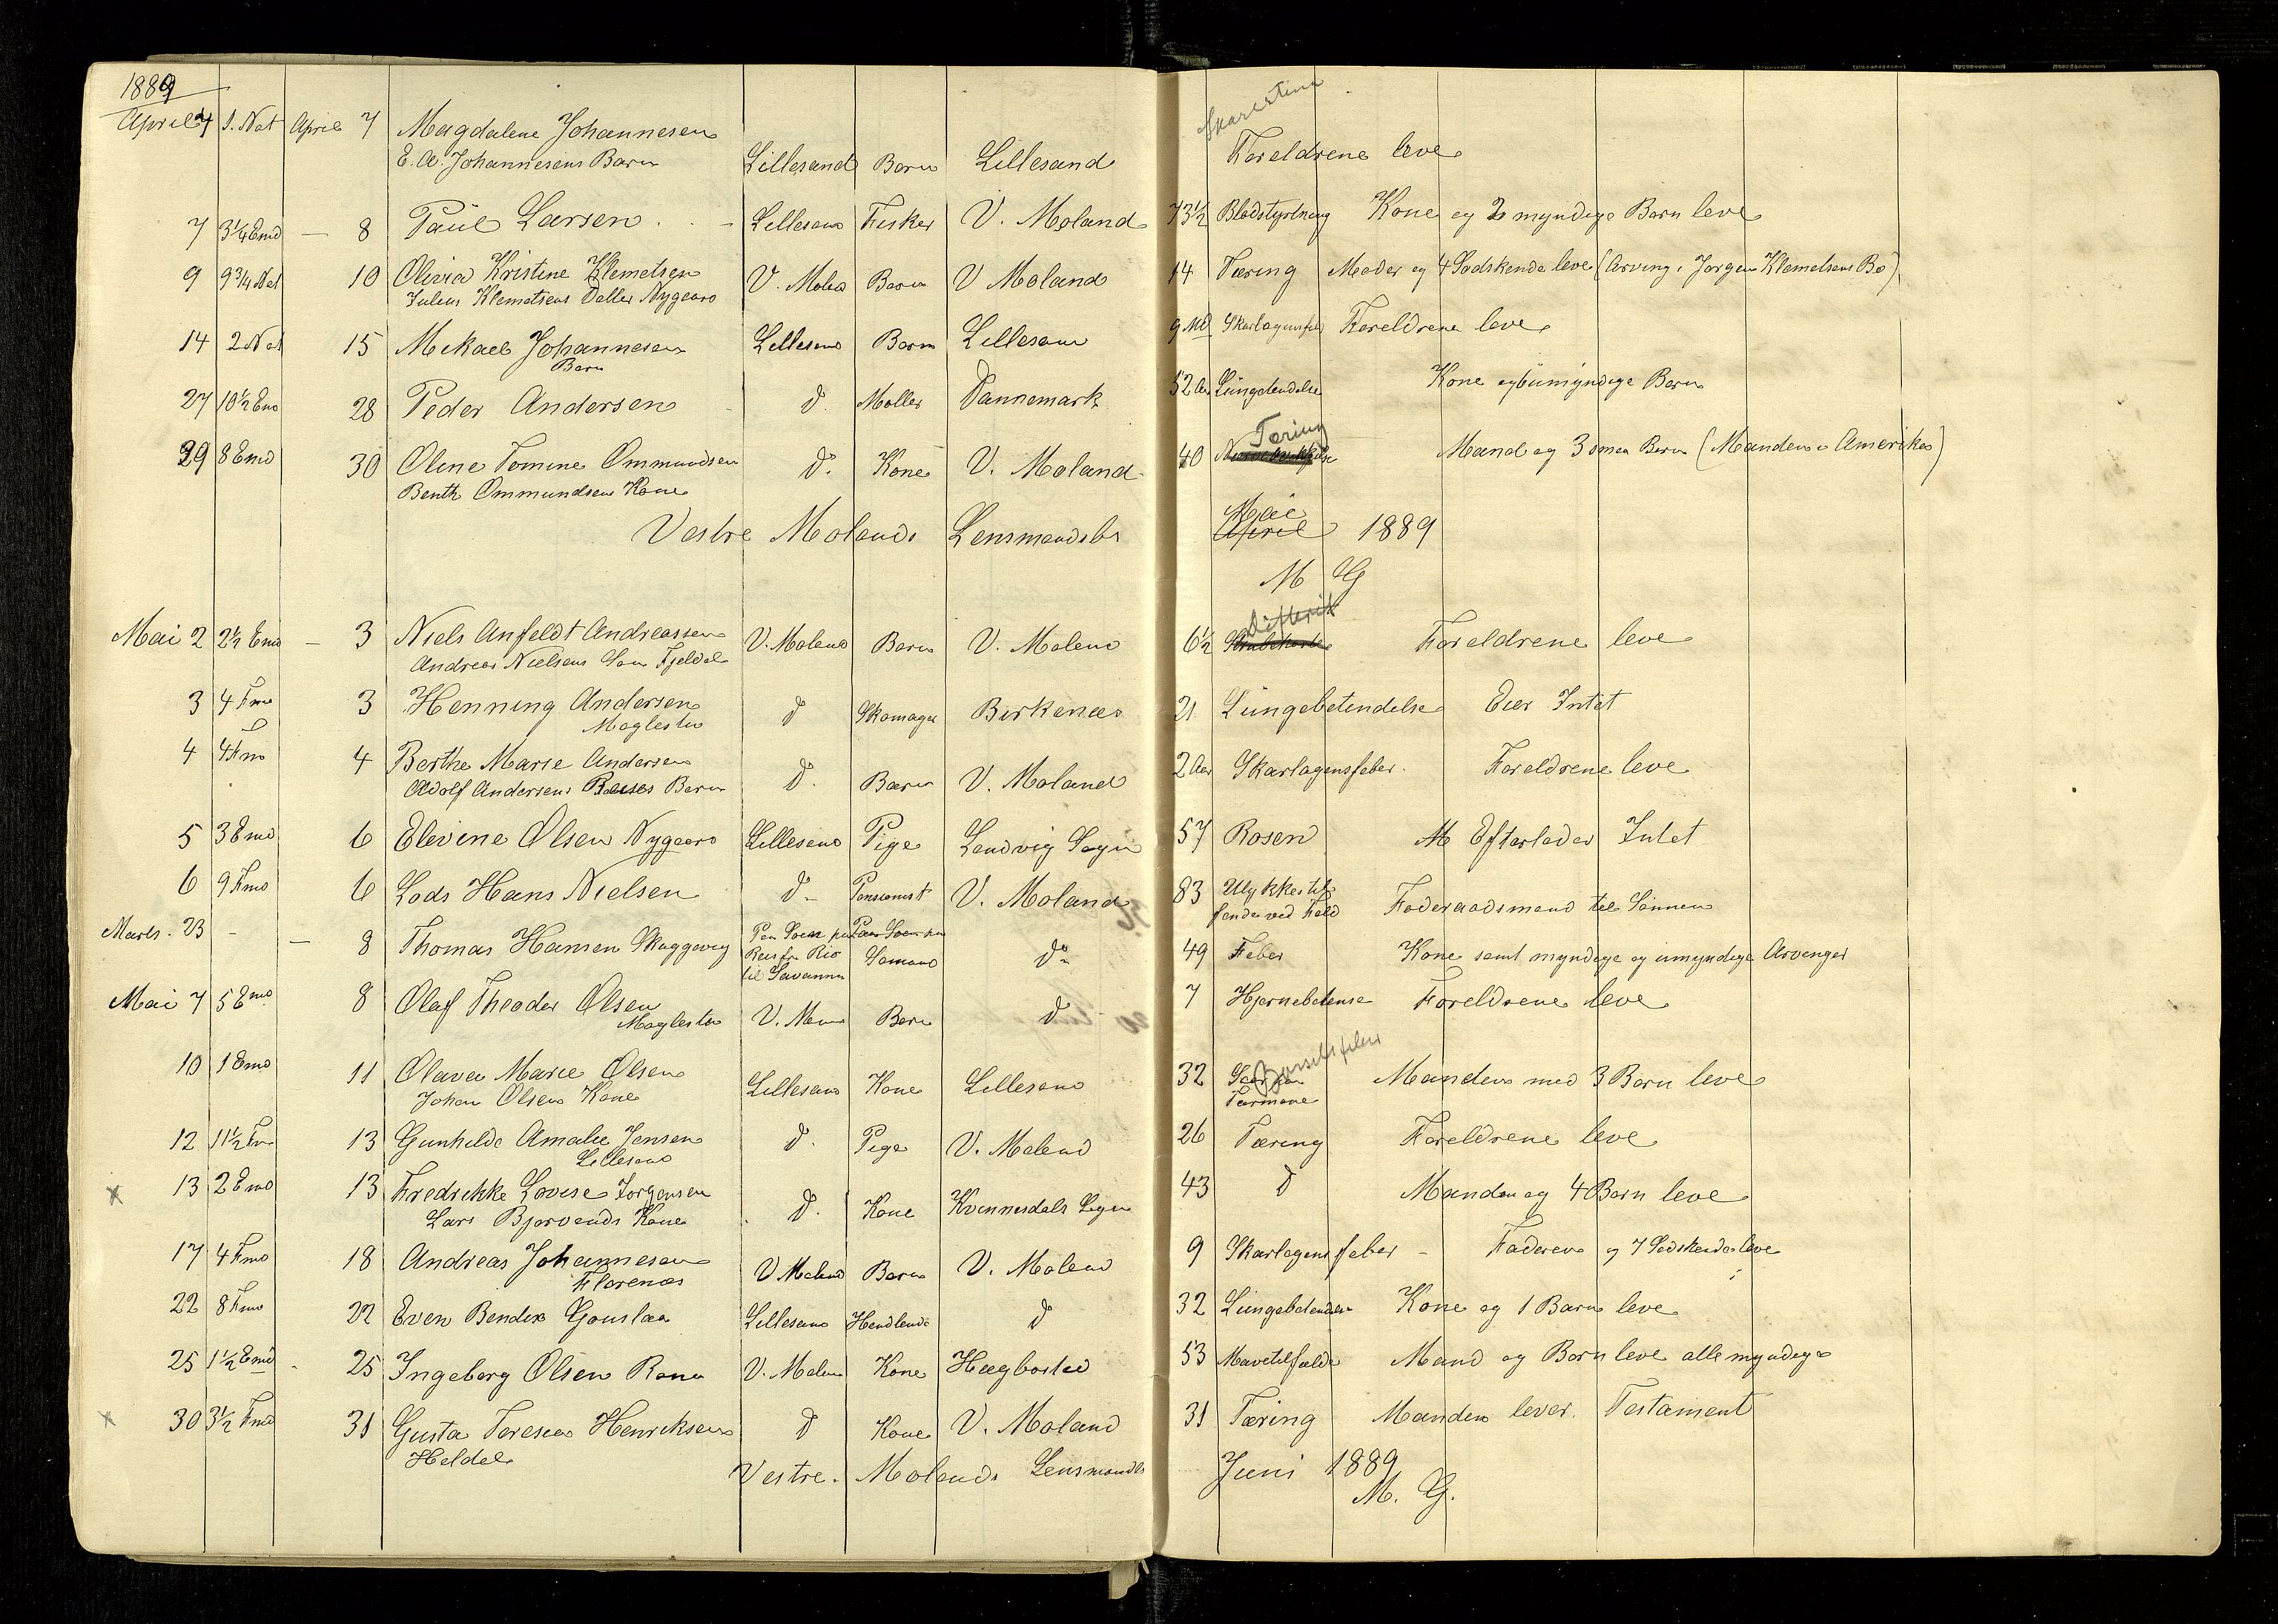 1889
April 4 1. Nat April 7 Magdalene Johannesen Skarlatina
E. A. Johannesens Barn Lillesand Barn Lillesand Foreldrene leve
7 3 1/4 Emd — 8 Paul Larsen Lillesand Fisker V. Moland 73 1/2 Blodstyrtning Kone og 2 myndige Børn leve
9 9 3/4 Nat 10 Olivia Kristine Klemetsen V. Molan Barn V Moland 14 Tæring Moder og 4 Sødskende leve (Arving i Jørgen Klemetsens Bo)
Julius Klemetsens Datter Nygaard
14 2 Nat 15 Mikael Johannesen Lillesand Barn Lillesand 9 Md Skarlagensfeb Foreldrene leve
Barn
27 10 1/2 Emd 28 Peder Andersen d. Møller Dannemark 52 Aar Lungebetendelse Kone og 6 umyndige Børn
Tæring
29 8 Emd 30 Oline Tomine Ommundsen d. Kone V. Moland 40 Mand og 3 smaa Børn (Manden i Amerika)
Benth Ommundsens Kone
Mai
Vestre Molands Lensmandsbs April 1889
M G
Difterit
Mai 2 2 1/2 Emd — 3 Niels Anfeldt Andreassen V. Moland Barn V. Moland 6 1/2 Strubehoste Foreldrene leve
Andreas Nielsens Søn Fjeldal
3 4 Fmd 3 Henning Andersen d Skomager Birkenæs 21 Lungebetendelse Eier Intet
Moglestu
4 4 Fmd 4 Berthe Marie Andersen d. Barn V. Moland 2 Aar Skarlagensfeber. Foreldrene leve
Adolf Andersens Barn
5 3 Emd 6 Elevine Olsen Nygaard Lillesand Pige Landvig Sogn 57 Rosen Efterlader Intet
6 9 Fmd 6 Lods Hans Nielsen d. Pensionist V. Moland 83 Ulykkestil-
fende ved Fald Føderaadsmand til Sønnen
Marts. 23 - — 8 Thomas Hansen Skaggevig Paa Soen paa
Reis fra Rio
til Savanna Sømand d 49 Feber Kone samt myndige og umyndige Arvinger
Mai 7 5 Emd 8 Olaf Theodor Olsen V. Barn d 7 Hjernebetense Foreldrene leve
Moglestu
Barselsfeber
10 1 Emd 11 Olava Marie Olsen Lillesand Kone Lillesand 32 Tarmene Manden med 3 Børn leve
Johan Olsens Kone
12 11 1/2 Fm 13 Gunhilde Amalie Jensen d. Pige V. Moland 26 Tæring Foreldrene leve
Lillesand
x 13 2 Emd 13 Fredrikke Lovise Jorgensen d. Kone Kvinnesdals Sogn 43 d Manden og 4 Børn leve
Lars Bjorvands Kone
17 4 Fmd 18 Andreas Johannesen V Moland Barn V. Moland 9 Skarlagensfeber - Faderen og 7 Sødskende leve
Florenæs
22 8 Fmd 22 Even Bendix Gouslaa Lillesand Handlende d 32 Lungebetendelse Kone og 1 Barn leve
25 1 1/2 Emd 25 Ingeborg Olsen V. Moland Kone Hægbostad 53 Mavetilfælde Mand og Børn leve alle myndige
x 30 3 1/2 Fmd 31 Gusta Teresia Henriksen d Kone V. Moland 31 Tæring Manden lever. Testament
Heldal
Vestre. Molands Lensmandsb Juni 1889
M. G.